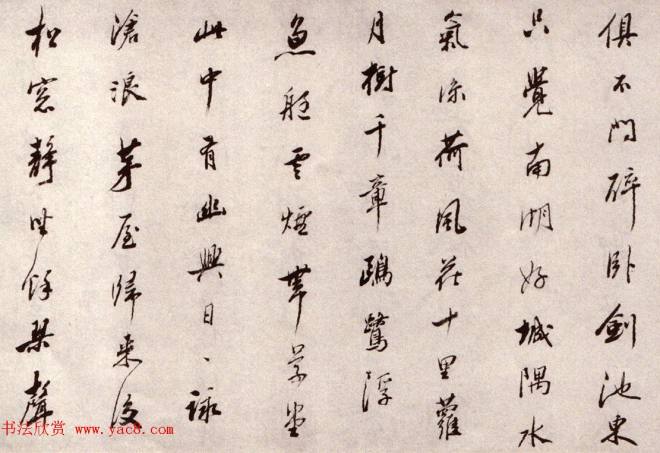 俱不问碎卧剑池東
只覺南湖好城隅水
氣涼荷風花十里蘿
月樹千章鷗鷺浮
魚艇雲煙帶草堂
此中有幽興日、詠
滄浪茅屋歸來後
松窓靜坐餘琴聲
书法欣赏 www.yac8.com